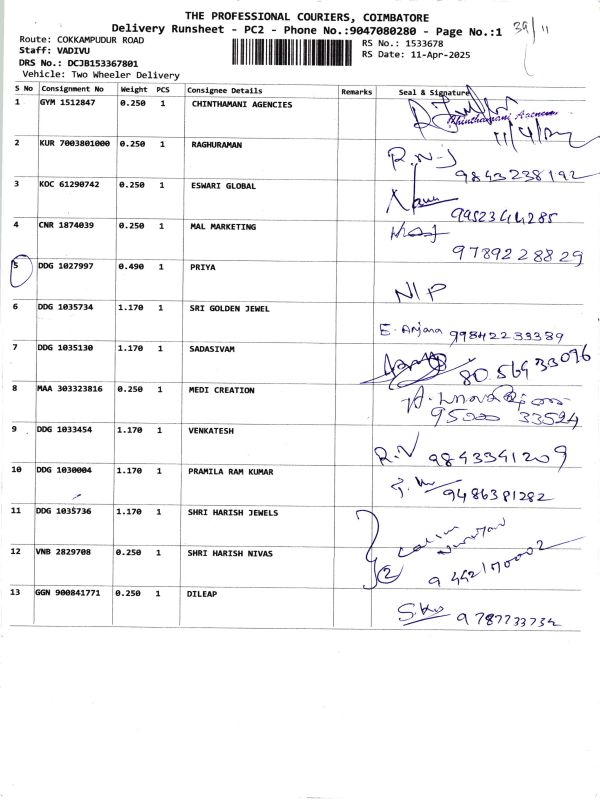 THE PROFESSIONAL COURIERS, COIMBATORE
Delivery Runsheet - PC2 - Phone No.:9047080280 - Page No.:1 39/11
Route: COKKAMPUDUR ROAD RS No.: 1533678
Staff: VADIVU RS Date: 11-Apr-2025
DRS No.: DCJB153367801
Vehicle: Two Wheeler Delivery
S No Consignment No Weight PCS Consignee Details Remarks Seal & Signature
1 GYM 1512847 0.250 1 CHINTHAMANI AGENCIES Chinthamani Agencies
2 KUR 7003801000 0.250 1 RAGHURAMAN R.N-J 9843238192
3 KOC 61290742 0.250 1 ESWARI GLOBAL 9952344285
4 CNR 1874039 0.250 1 MAL MARKETING 9789228829
5 DDG 1027997 0.490 1 PRIYA N/P
6 DDG 1035734 1.170 1 SRI GOLDEN JEWEL E. Anjana 99842233389
7 DDG 1035130 1.170 1 SADASIVAM
8 MAA 303323816 0.250 1 MEDI CREATION
9 DDG 1033454 1.170 1 VENKATESH R.V 9843341209
10 DDG 1030004 1.170 1 PRAMILA RAM KUMAR 9486381282
11 DDG 1035736 1.170 1 SHRI HARISH JEWELS
12 VNB 2829708 0.250 1 SHRI HARISH NIVAS 2 9442170002
13 GGN 900841771 0.250 1 DILEAP 9787733734